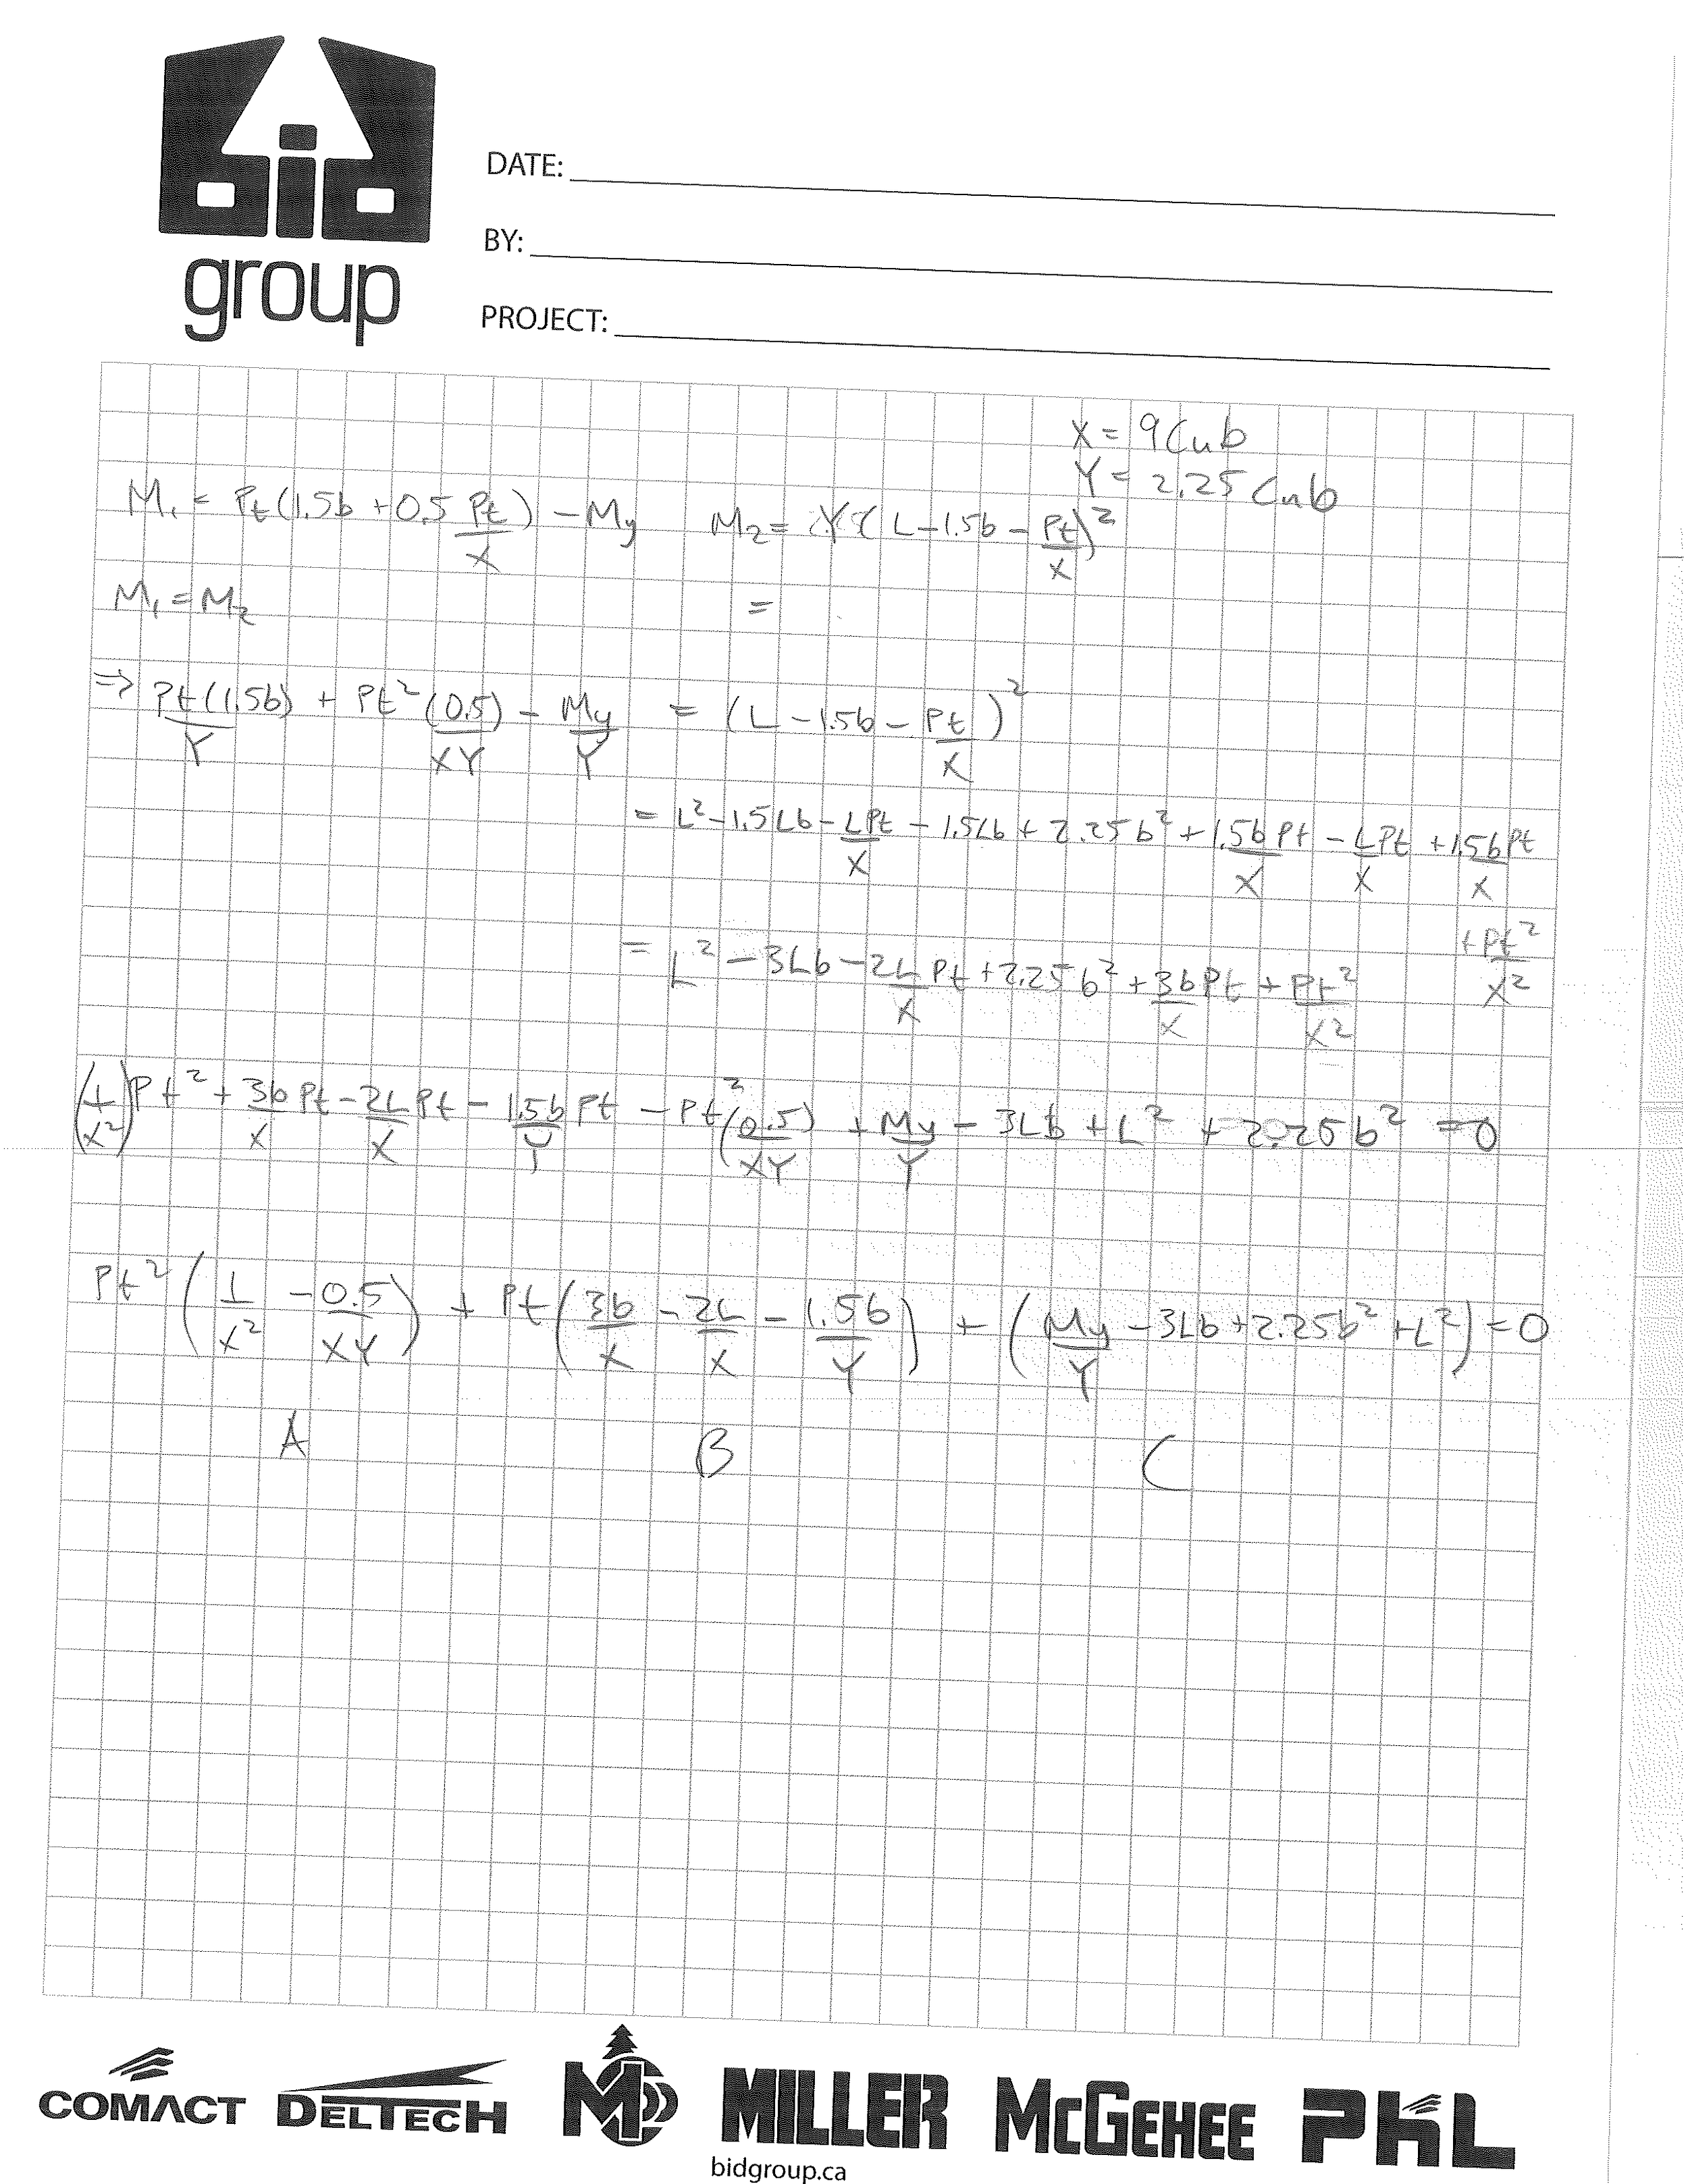 bid
group
DATE:
BY:
PROJECT:
X = 9Cub
Y = 2.25 Cub
M₁ = Pt(1.5b + 0.5 Pt/X) - My M₂ = Y(L - 1.5b - Pt/X)²
M₁ = M₂ =
⇒ Pt(1.5b)/Y + Pt²(0.5)/XY - My/Y = (L - 1.5b - Pt/X)²
= L² - 1.5Lb - LPt/X - 1.5Lb + 2.25b² + 1.5bPt/X - LPt/X + 1.5bPt/X
+ Pt²/X²
= L² - 3Lb - 2L/X Pt + 2.25b² + 3b/X Pt + Pt²/X²
(1/X²)Pt² + 3b/X Pt - 2L/X Pt - 1.5b/Y Pt - Pt²(0.5)/XY + My/Y - 3Lb + L² + 2.25b² = 0
Pt²(1/X² - 0.5/XY) + Pt(3b/X - 2L/X - 1.5b/Y) + (My/Y - 3Lb + 2.25b² + L²) = 0
A B C
COMACT DELTECH MILLER McGEHEE PHL
bidgroup.ca